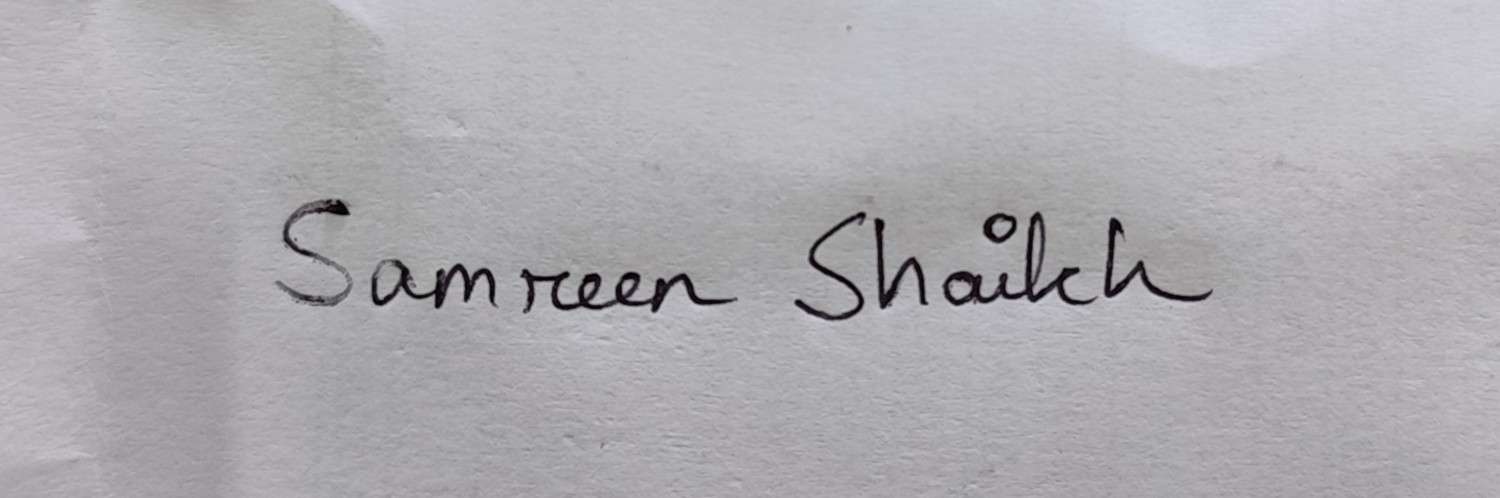 Samreen Shaikh